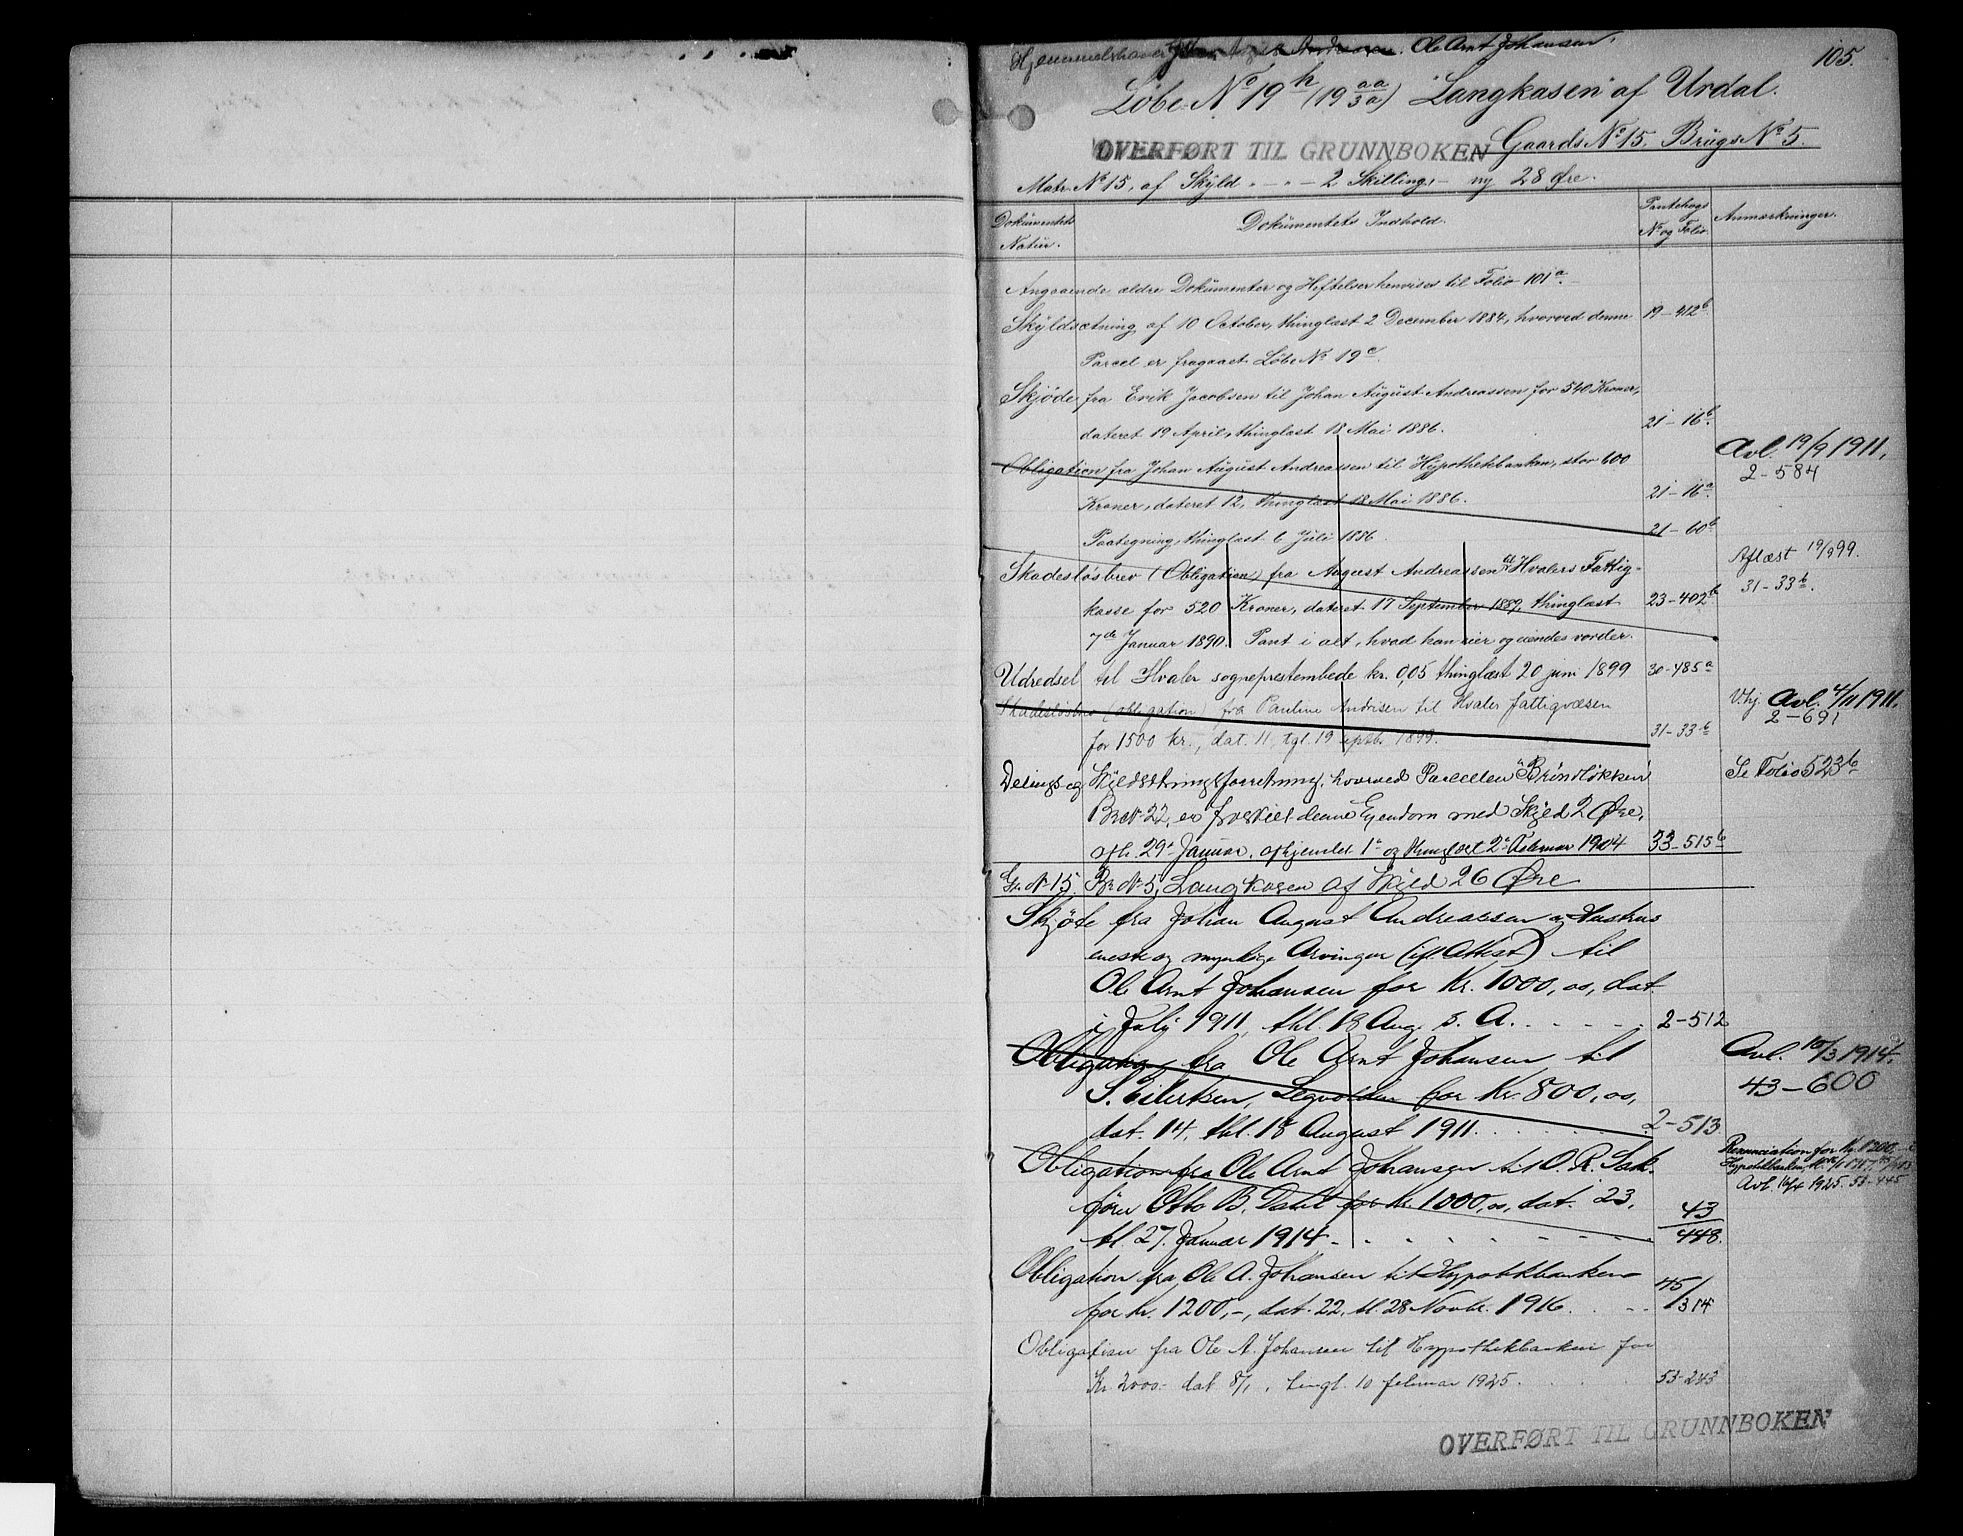 Hjemmelshaver Johan August Andreasen. Ole Arnt Johansen.
105.
Löbe No 19h (19 aa/3a) "Langkasen" af Urdal.
OVERFØRT TIL GRUNNBOKEN Gaards No 15, Brügs No 5.
Matr. No 15, af Skyld " - " - 2 Skilling, - ny 28 Øre.
Dokümentets Natür.
Dokümentets Indhold.
Pantebogs No og Folio.
Anmærkninger.
Angaaende ældre Dokümenter og Heftelser henvises til Folio 101a.
Skyldsætning af 10 October, thinglæst 2 December 1884, hvorved denne 19-412b.
Parcel er fragaaet Løbe No 19c.
Skjöde fra Erik Jacobsen til Johan Aügüst Andreassen for 540 Kroner,
dateret 19 April, thinglæst 18 Mai 1886. 21-16b.
Obligation fra Johan Aügüst Andreassen til Hypothekbanken, stor 600 Avl. 19/9 1911,
2-584
Kroner, dateret 12, thinglæst 18 Mai 1886. 21-16a.
Paategning, thinglæst 6 Jüli 1886. 21-60b
Skadesløsbrev (Obligation) fra Aügüst Andreassen til Hvalers Fattig- Aflæst 19/9 99.
31-33b.
kasse for 520 Kroner, dateret 17 September 1889, thinglæst 23-402b
7de Januar 1890. Pant i alt, hvad han eier og eiendes vorder.
Udredsel til Hvaler sogneprestembede kr. 0,05 thinglæst 20 juni 1899 30-485a
Skadesløsbrev (obligation) fra Pauline Andrisen til Hvaler fattigvæsen V.hj. Avl. 4/11 1911.
2-691
for 1500 kr., dat. 11, tgl. 19 septbr 1899. 31-33b
Delings og Skyldsætningsforretning, hvorved Parcellen "Bründløkken" Se Folio 523b
Br No 22, er fraskilt denne Ejendom med Skyld 2 Øre,
afh. 29. Januar, afhjemlet 1. og thinglæst 2. Februar 1904 33-515b
Gr. No 15. Br. No 5, Langkasen af Skyld 26 Øre
Skjöte fra Johan August Andreassen og Hustrus
eneste og myndige Arvinger (ifl. Attest) til
Ole Arnt Johansen for Kr. 1000,00, dat.
i July 1911, thl. 18 Aug. s. A. . . . . 2-512
Obligation fra Ole Arnt Johansen til Avl. 10/3 1914.
S. Eilertsen, for Kr. 800,00, 43-600
dat. 14, thl. 18 August 1911. . . . . 2-513
Obligation fra Ole Arnt Johansen til O.R. Sak- Renunciation for Kr. 1200,- t.
Hypothekbanken,
Avl. 16/4 1925. 53-445
fører Otto B. Dahl for Kr. 1000,00, dat. 23,
tl. 27. Januar 1914. . . . . 43/448.
Obligation fra Ole A. Johansen til Hypotekbanken
for Kr. 1200,-, dat. 22, tl. 28 Novbr. 1916. . . . 45/314
Obligation fra Ole A. Johansen til Hypothekbanken for
Kr. 2000.- dat. 8/1, tingl. 10 februar 1925. . . . . 53-243
OVERFØRT TIL GRUNNBOKEN